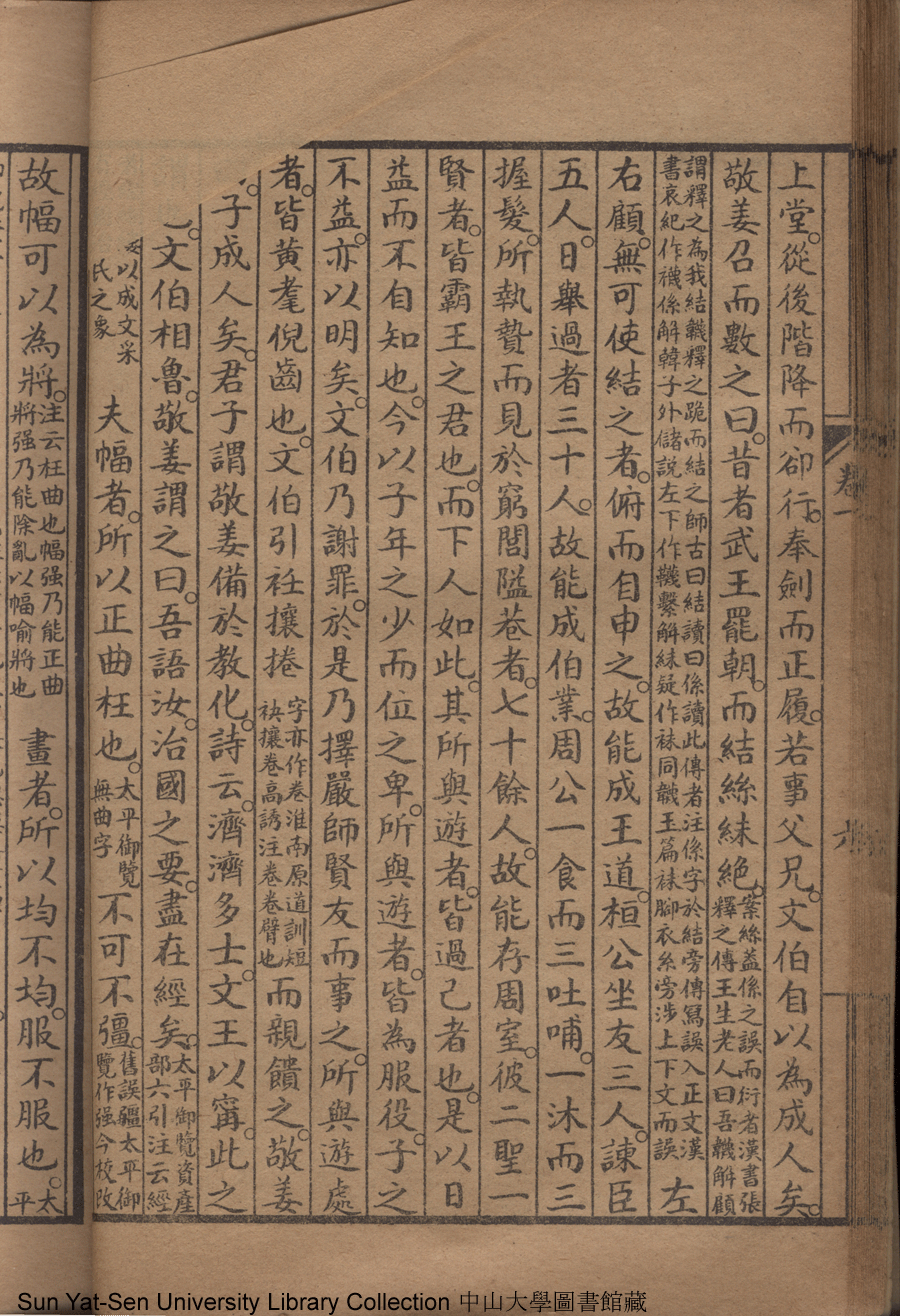 上堂。從後階降而卻行。奉劍而正履。若事父兄。文伯自以為成人矣。
敬姜召而數之曰。昔者武王罷朝。而結絲絉絶。案絲蓋係之誤而衍者漢書張釋之傳王生老人曰吾韈解顧
謂釋之為我結韈釋之跪而結之師古曰結讀曰係讀此傳者注係字於結旁傳冩誤入正文漢書哀紀作襪係解韓子外儲說左下作韈繫解絉疑作袜同韈玉篇袜腳衣糸旁涉上下文而誤 左
右顧。無可使結之者。俯而自申之。故能成王道。桓公坐友三人。諫臣
五人。日舉過者三十人。故能成伯業。周公一食而三吐哺。一沐而三
握髮。所執贄而見於窮閭隘巷者。七十餘人。故能存周室。彼二聖一
賢者。皆霸王之君也。而下人如此。其所與遊者。皆過己者也。是以日
益而不自知也。今以子年之少而位之卑。所與遊者。皆為服役。子之
不益。亦以明矣。文伯乃謝罪。於是乃擇嚴師賢友而事之。所與遊處
者。皆黃耄倪齒也。文伯引衽攘捲 字亦作卷淮南原道訓短袂攘卷高誘注卷卷臂也 而親饋之。敬姜
子成人矣。君子謂敬姜備於教化。詩云。濟濟多士。文王以寗。此之
文伯相魯。敬姜謂之曰。吾語汝。治國之要。盡在經矣。太平御覽資產部六引注云經
以成文采氏之象 夫幅者。所以正曲枉也。太平御覽無曲字 不可不彊。舊誤疆太平御覽作强今校改
故幅可以為將。注云枉曲也幅强乃能正曲將强乃能除亂以幅喻將也 畫者。所以均不均。服不服也。太平
卷一
六
Sun Yat-Sen University Library Collection 中山大學圖書館藏